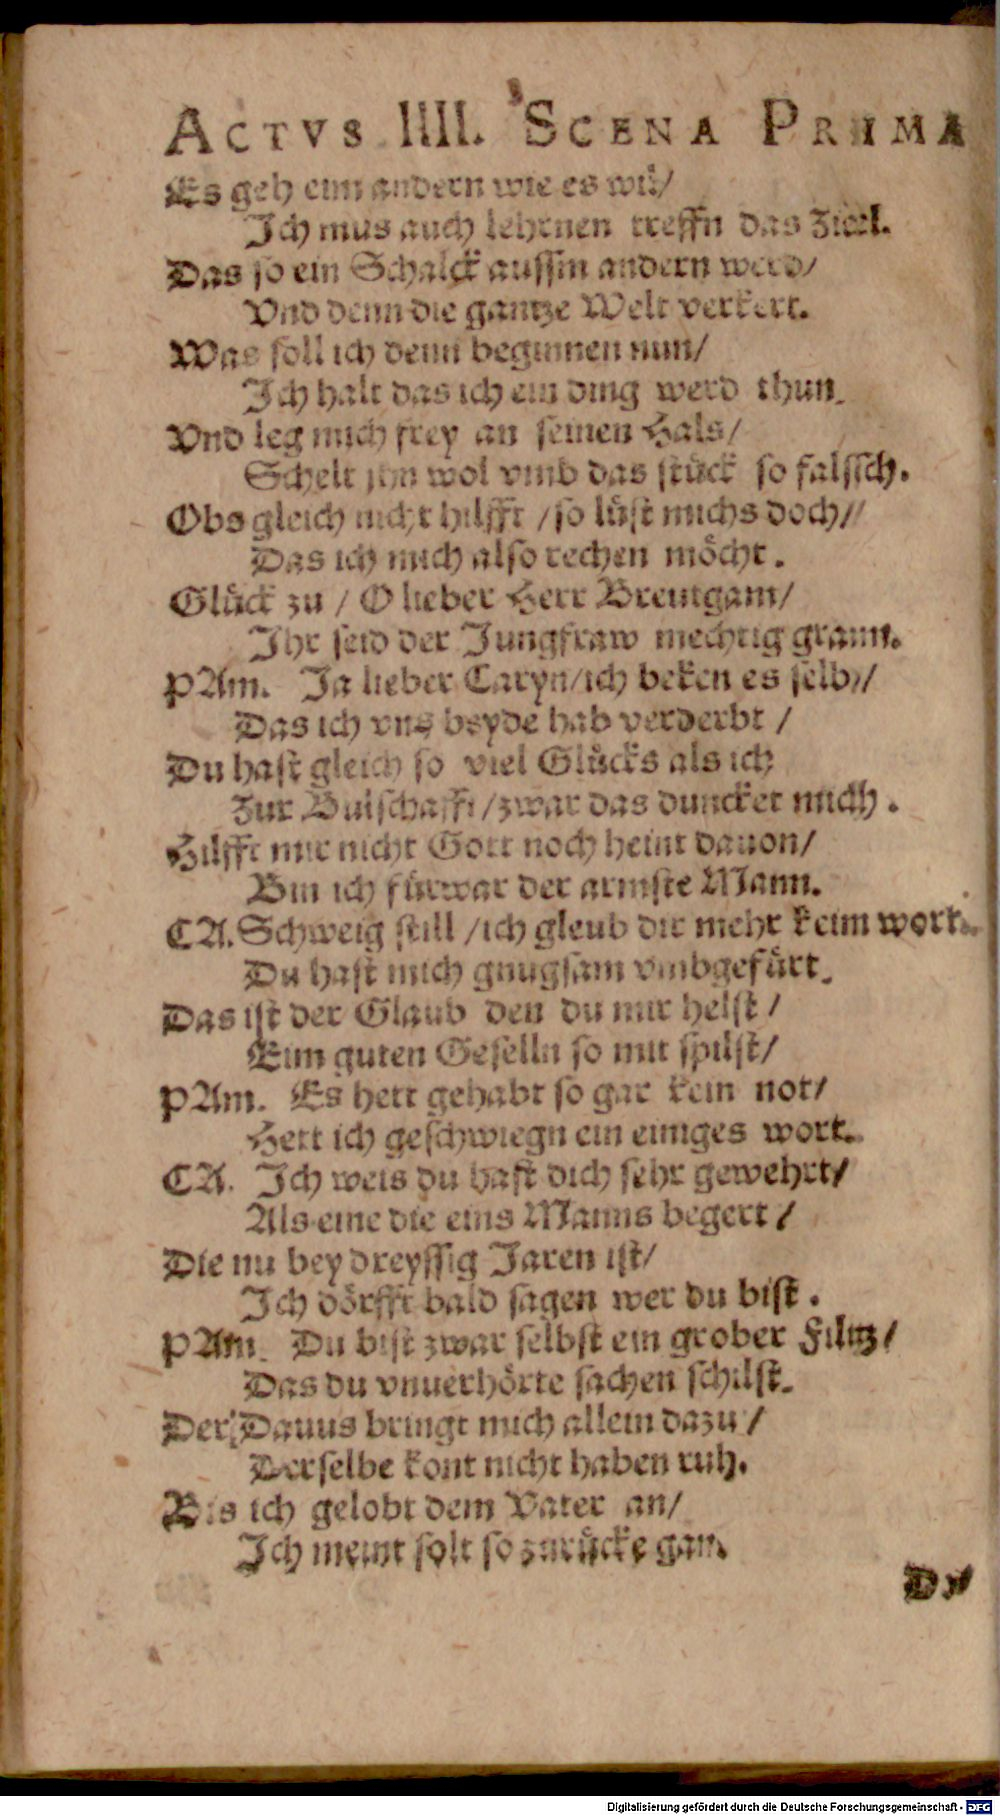 ACTVS IIII. SCENA PRIMA
Es geh eim andern wie es wil/
Ich mus auch lehrnen treffn das Zieel.
Das so ein Schalck aussm andern werd/
Vnd denn die gantze Welt verkert.
Was soll ich denn beginnen nun/
Ich halt das ich ein ding werd thun.
Vnd leg mich frey an seinen Hals/
Schelt jhn wol vmb das stuͤck so falssch.
Obs gleich nicht hilfft / so luͤst michs doch//
Das ich mich also rechen moͤcht.
Gluͤck zu / O lieber Herr Breutgam/
Ihr seid der Jungfraw mechtig gramm.
PAm. Ja lieber Caryn/ich beken es selb//
Das ich vns beyde hab verderbt /
Du hast gleich so viel Gluͤcks als ich
Zur Bulschafft/zwar das duncket mich.
Hilfft mir nicht Gott noch heint dauon/
Bin ich fuͤrwar der armste Mann.
CA. Schweig still /ich gleub dir mehr keim wort.
Du hast mich gnugsam vmbgefuͤrt.
Das ist der Glaub den du mir helst /
Eim guten Geselln so mit spilst/
PAm. Es hett gehabt so gar kein not/
Hett ich geschwiegn ein einiges wort.
CA. Ich weis du hast dich sehr gewehrt/
Als eine die eins Manns begert /
Die nu bey dreyssig Jaren ist/
Ich doͤrfft bald sagen wer du bist.
PAm. Du bist zwar selbst ein grober Filtz/
Das du vnuerhoͤrte sachen schilst.
Der Dauus bringt mich allein dazu /
Derselbe kont nicht haben ruh.
Bis ich gelobt dem Vater an/
Ich meint solt so zuruͤcke gan.
Digitalisierung gefördert durch die Deutsche Forschungsgemeinschaft - DFG